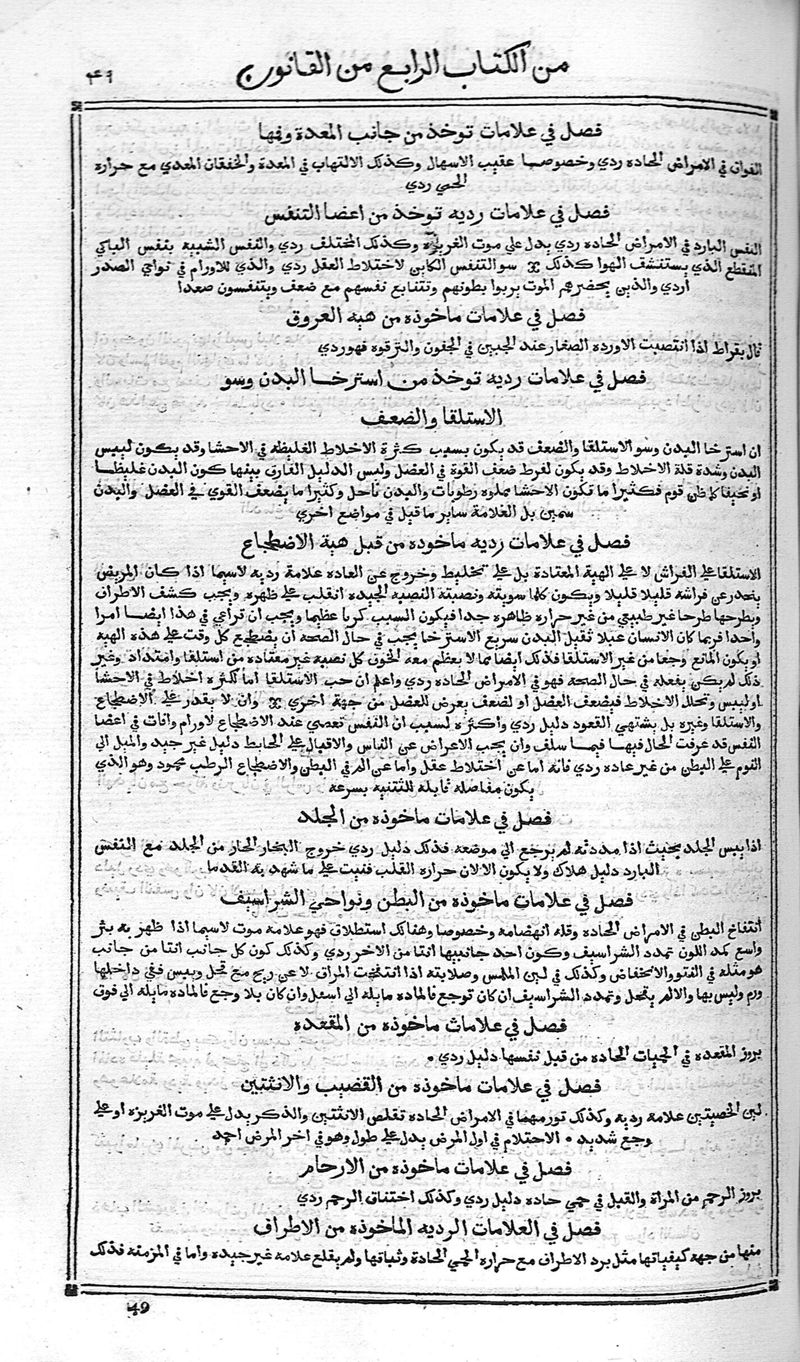 من الكتاب الرابع من القانون
٤٩
فصل في علامات توخذ من جانب المعدة وفمها
الفواق في الامراض الحاده ردي وخصوصا عقيب الاسهال وكذلك الالتهاب في المعدة والخفقان المعدي مع حراره
الحمي ردي
فصل في علامات رديه توخذ من اعضا التنفس
النفس البارد في الامراض الحاده ردي يدل علي موت الغريزة وكذلك المختلف ردي والنفس الشبيه بنفس الباكي
المنقطع الذي يستنشف الهوا كذلك سو التنفس الكاين لاختلاط العقل ردي والذي للاورام في نواحي الصدر
اردي والذين يحضرهم الموت يربوا بطونهم وتتتابع نفسهم مع ضعف ويتنفسون صعدا
فصل في علامات ماخوذه من هيه العروق
قال بقراط اذا انتصبت الاورده الصغار عند الجبين في الجفون والترقوه فهو ردي
فصل في علامات رديه توخذ من استرخا البدن وسو
الاستلقا والضعف
ان استرخا البدن وسو الاستلقا والضعف قد يكون بسبب كثرة الاخلاط الغليظه في الاحشا وقد يكون ليبس
البدن وشدة قلة الاخلاط وقد يكون لفرط ضعف القوة في العضل وليس الدليل الفارق بينها كون البدن غليظا
او نحيفا كما ظن قوم فكثيرا ما تكون الاحشا مملوه رطوبات والبدن ناحل وكثيرا ما يضعف القوي في العضل والبدن
سمين بل العلامة ساير ما قيل في مواضع اخري
فصل في علامات رديه ماخوذه من قبل هية الاضطجاع
الاستلقا علي الفراش لا علي الهية المعتادة بل علي تخليط وخروج عن العاده علامة رديه لاسيما اذا كان المريض
ينحدر عن فراشه قليلا قليلا ويكون كلما سويته ونصبته النصبه الجيده انقلب علي ظهره ويحب كشف الاطراف
ويطرحها طرحا غير طبيعي من غير حراره ظاهره جدا فيكون السبب كربا عظيما ويجب ان تراعي في هذا ايضا امرا
واحدا فربما كان الانسان عبلا ثقيل البدن سريع الاسترخا يحب في حال الصحة ان يضطجع كل وقت علي هذه الهيه
او يكون المانع وجعا من غير الاستلقا فذلك ايضا مما لا يعظم معه الخوف كل نصبه غير معتاده من استلقا وامتداد وغير
ذلك لم يكن يفعله في حال الصحة فهو في الامراض الحاده ردي واعلم ان حب الاستلقا اما لكثره اخلاط في الاحشا
او ليبس وتحلل الاخلاط فيضعف العضل او لضعف يعرض للعضل من جهة اخري وان لا يقدر علي الاضطجاع
والاستلقا وغيره بل يشتهي القعود دليل ردي واكثره لسبب ان النفس تعصي عند الاضطجاع لاورام وافات في اعضا
النفس قد عرفت الحال فيها فيما سلف وان يحب الاعراض عن الناس والاقبال علي الحايط دليل غير جيد والميل الي
النوم علي البطن من غير عاده ردي فانه اما عن اختلاط عقل واما عن الم في البطن والاضطجاع الرطب محمود وهو الذي
يكون مفاصله قابله للتثنيه بسرعه
فصل في علامات ماخوذه من الجلد
اذا يبس الجلد بحيث اذا مددته لم يرجع الي موضعه فذلك دليل ردي خروج البخار الحار من الجلد مع النفس
البارد دليل هلاك ولا يكون الا لان حراره القلب فنيت علي ما شهد به القدما
فصل في علامات ماخوذه من البطن ونواحي الشراسيف
انتفاخ البطن في الامراض الحاده وقله انهضامه وخصوصا وهنالك استطلاق فهو علامه موت لاسيما اذا ظهر به بثر
واسع كمد اللون تمدد الشراسيف وكون احد جانبيها انتا من الاخر ردي وكذلك كون كل جانب انتا من جانب
هو مثله في الفتو والانخفاض وكذلك في لين الملمس وصلابته اذا انتفخت المراق لا عن ريح مع قحل ويبس ففي داخلها
ورم وليس بها والا لم يقحل وتمدد الشراسيف ان كان توجع فالماده مايله الي اسفل وان كان بلا وجع فالماده مايله الي فوق
فصل في علامات ماخوذه من المقعده
بروز المقعده في الحميات الحاده من قبل نفسها دليل ردي
فصل في علامات ماخوذه من القضيب والانثتين
لين الخصيتين علامه رديه وكذلك تورمهما في الامراض الحاده تقلص الانثتين والذكر يدل علي موت الغريزه او علي
وجع شديد الاحتلام في اول المرض يدل علي طول وهو في اخر المرض احمد
فصل في علامات ماخوذه من الارحام
بروز الرحم من المراة والقبل في حمي حاده دليل ردي وكذلك اختناق الرحم ردي
فصل في العلامات الرديه الماخوذه من الاطراف
منها من جهه كيفياتها مثل برد الاطراف مع حراره الحمي الحادة وثباتها ولم يقلع علامه غير جيده واما في المزمنه فذلك
49